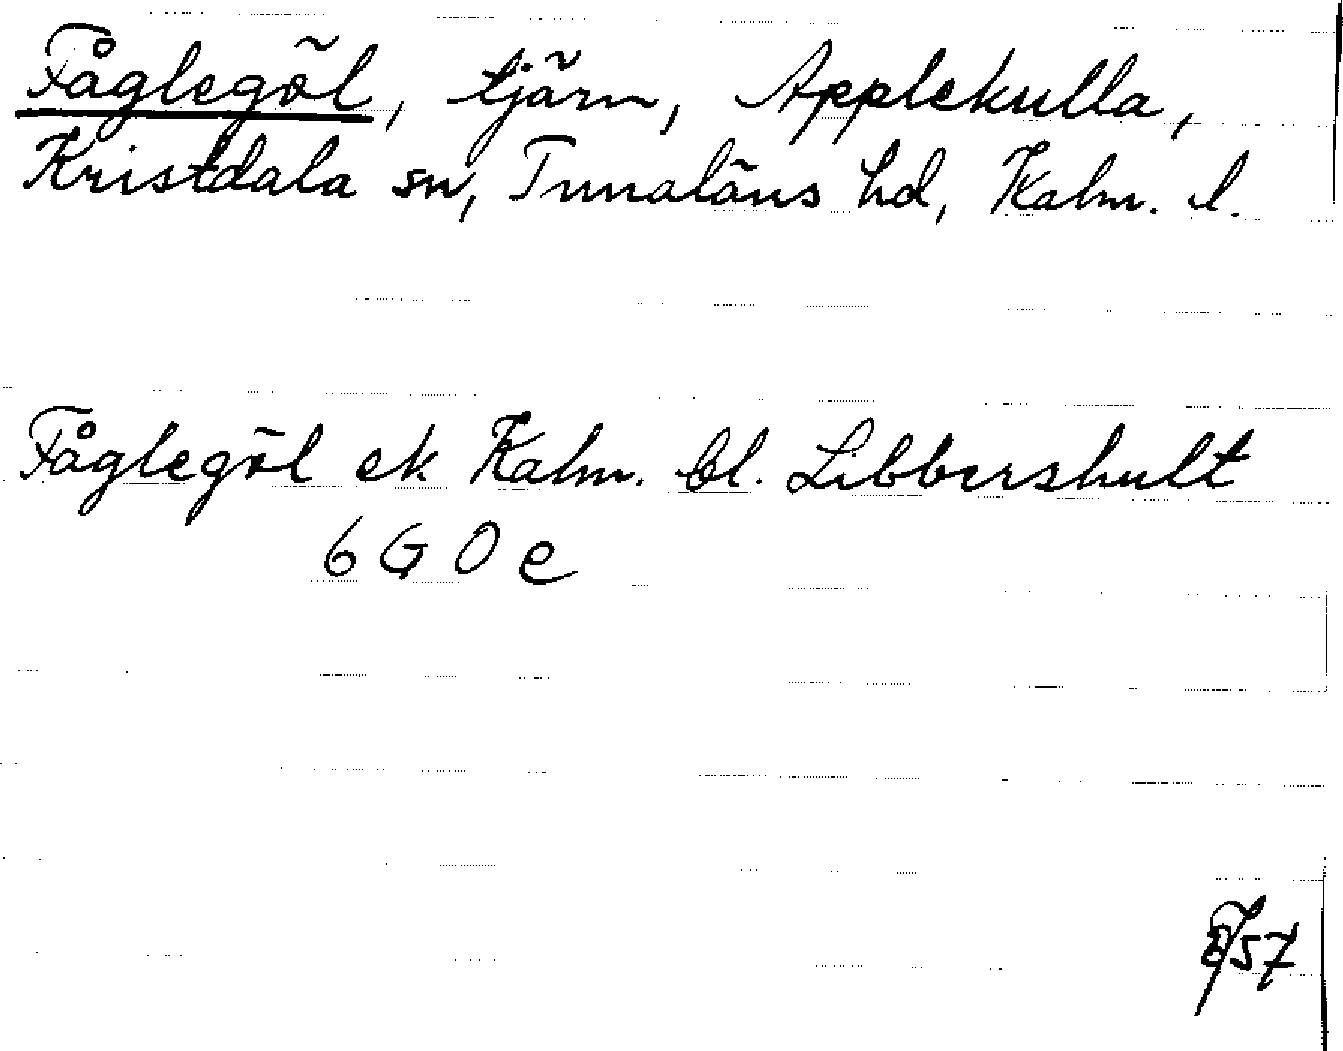 Fåglegöl, tjärn, Applekulla,
Kristdala sn, Tunaläns hd, Kalm. l.
Fåglegöl ek Kalm. bl. Libbershult
6 G 0 e